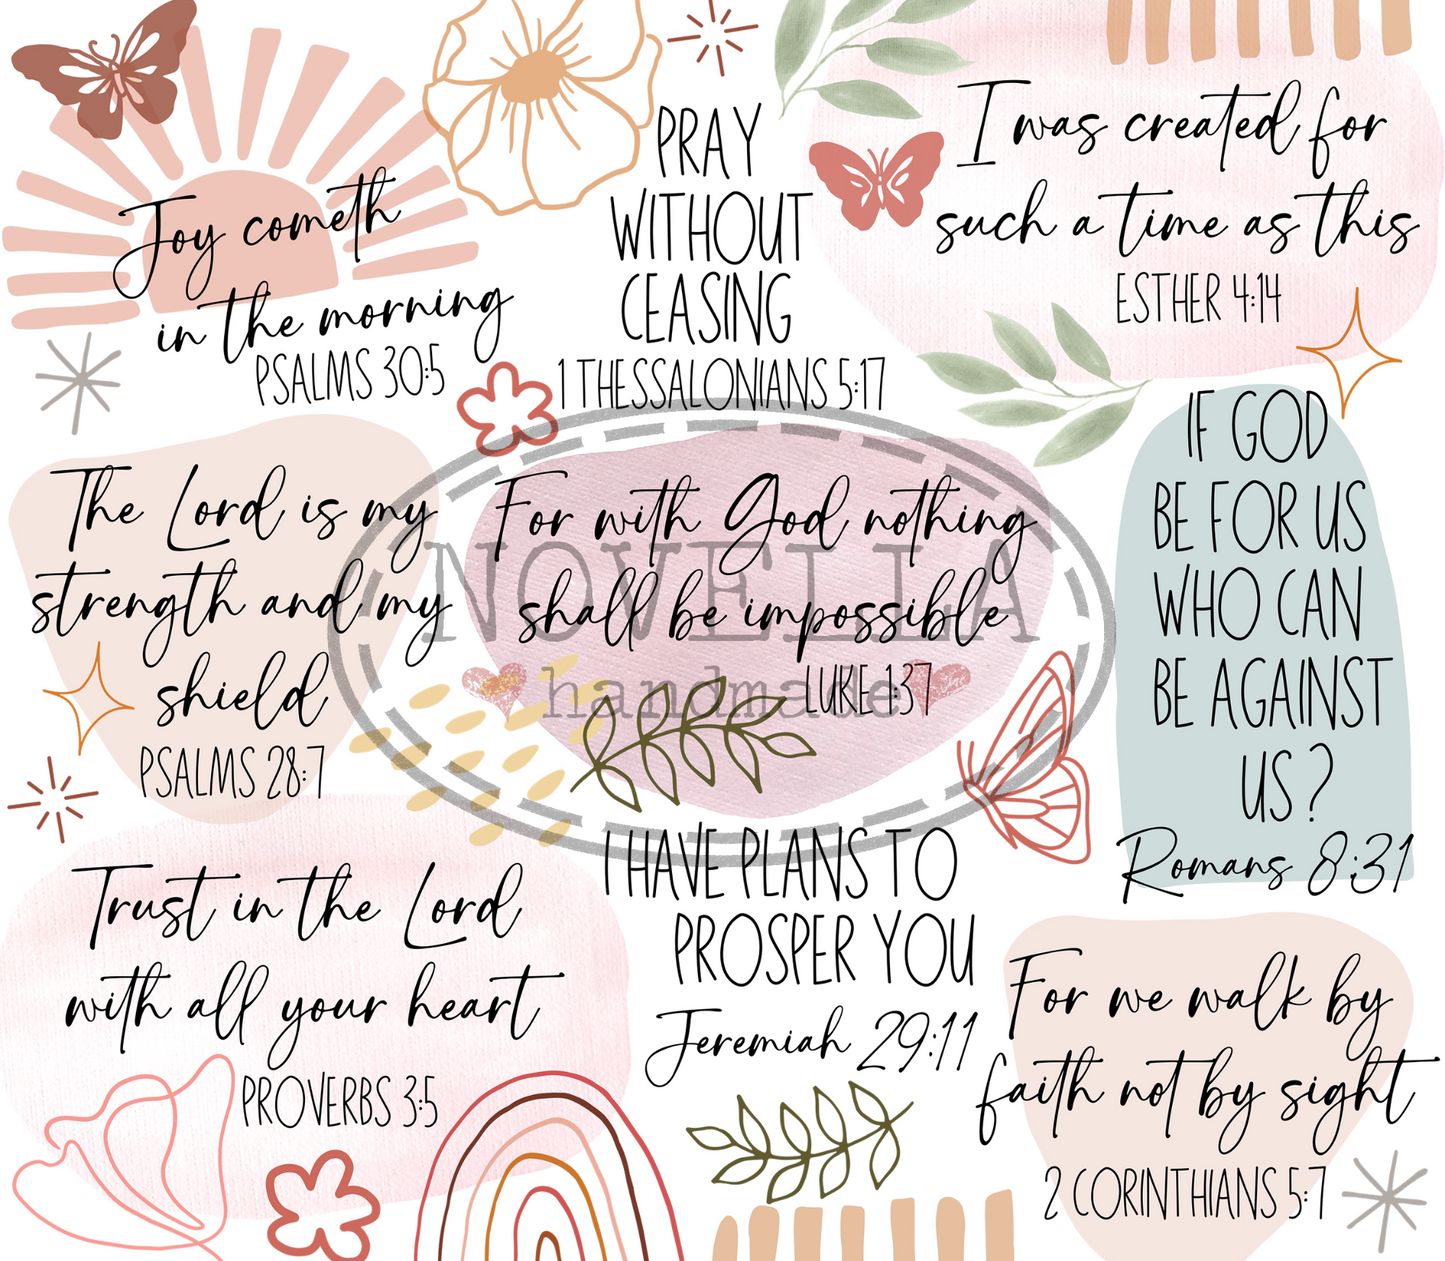 Joy cometh
in the morning
PSALMS 30:5
PRAY
WITHOUT
CEASING
1 THESSALONIANS 5:17
I was created for
such a time as this
ESTHER 4:14
The Lord is my
strength and my
shield
PSALMS 28:7
For with God nothing
shall be impossible
LUKE 1:37
NOVELLA
handmade
IF GOD
BE FOR US
WHO CAN
BE AGAINST
US?
Romans 8:31
Trust in the Lord
with all your heart
PROVERBS 3:5
I HAVE PLANS TO
PROSPER YOU
Jeremiah 29:11
For we walk by
faith not by sight
2 CORINTHIANS 5:7